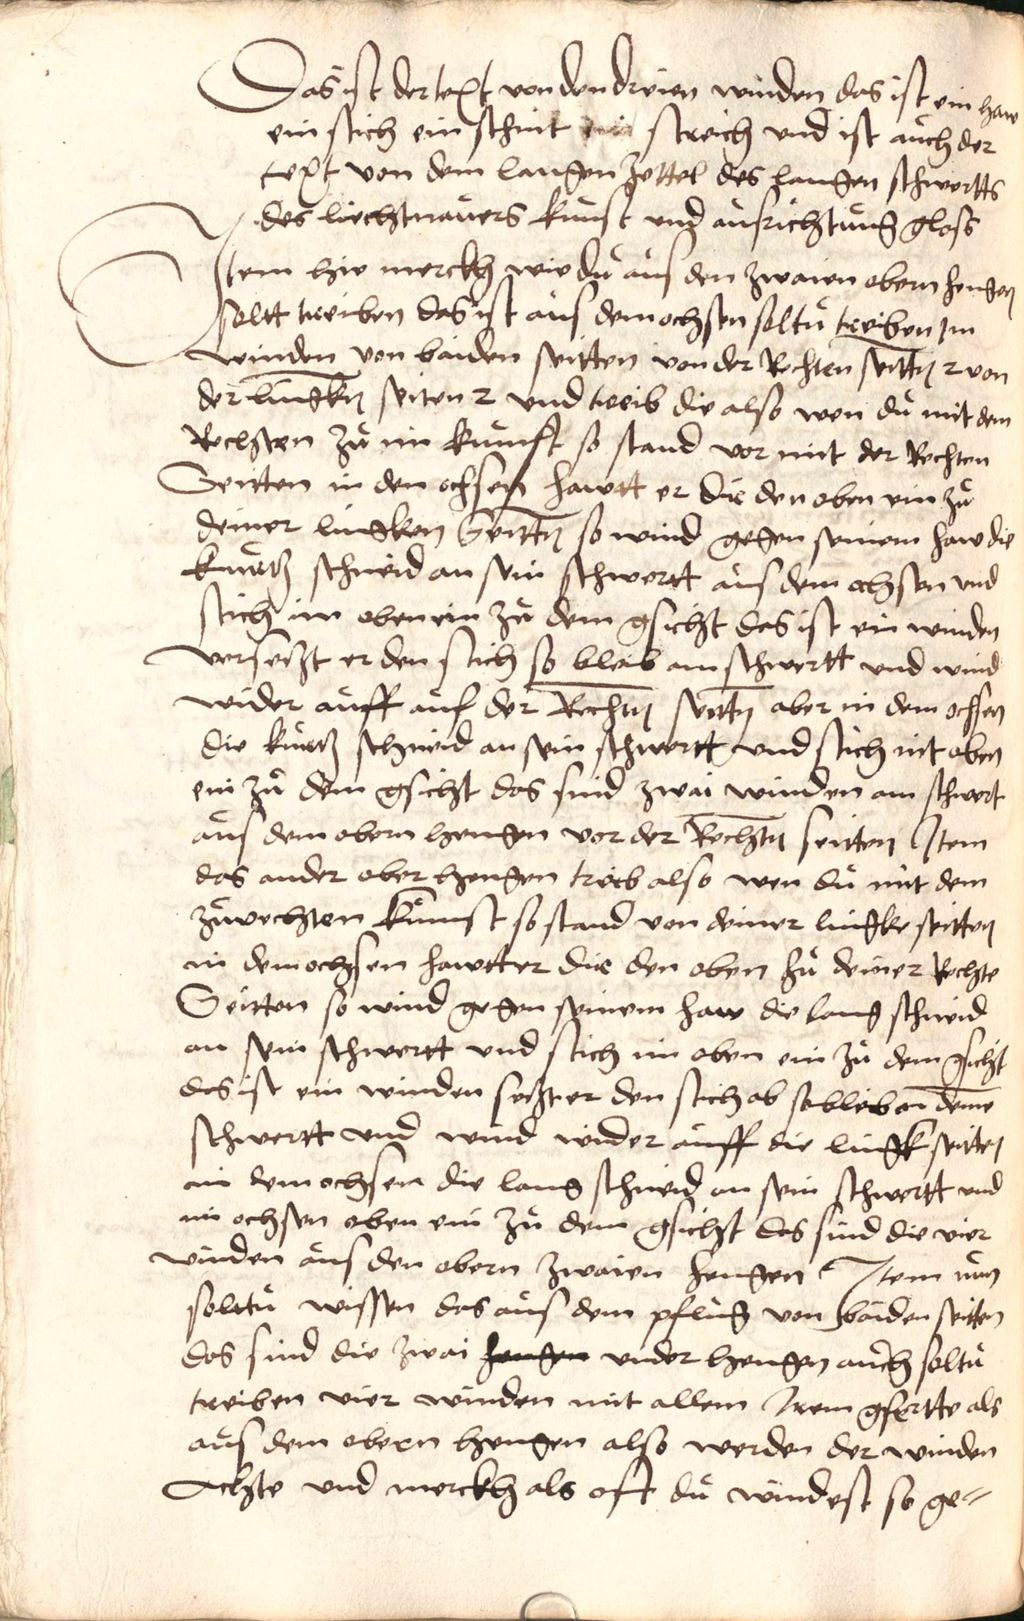 Das ist der text von den dreien winden das ist ein haw
ein stich ein schnit streich und ist auch der
text von dem langen zettel des langen schwertts
des liechtnauers kunst und ausrichtung gloss
Item hie merckh wie du aus den zwaien obern hengen
soltt treiben das ist aus dem ochsen soltu treiben im
winden von baiden seitten von der Rechten seittn 2 von
der lingkn seiten 2 und treib die also wen du mit dem
Rechten zu im kumst so stand vor mit der Rechten
Seitten in den ochsen hawtt er die den oben ein zu
deiner lingken Seittn so wind gegen seinem haw die
kurtz schneid an sein schwertt aus dem ochsen und
stich im oben ein zu dem gsicht das ist ein winden
versetzt er den stich so bleib am schwertt und wind
wider auff auf der Rechtn seittn aber in dem ochsen
die kurtz schneid an sein schwertt und stich int oben
ein zu dem gsicht das sind zwai winden am schwert
aus dem obern hengen vor der Rechtn seitten Item
das ander ober hengen treib also wen du mit dem
zuvechten kumst so stand von deiner lingke seitten
in dem ochsen hawtt er die den oben zu deiner Rechte
Seitten so wind gegen seinem haw die lang schneid
an sein schwertt und stich im oben ein zu dem gsicht
das ist ein winden setzt er den stich ab so bleib an deme
schwertt und wind wider auff die lingk seitten
in dem ochsen die lang schneid an sein schwertt und
im ochsen oben ein zu dem gsicht das sind die vier
winden aus den obern zwaien hengen Item nun
soltu wissen das aus dem pflug von baiden seitten
das sind die zwai hengen under hengen auch soltu
treiben vier winden mit allem irem gfertte als
aus dem obern hengen also werden der winden
Achte und merckh als oft du windest so ge=